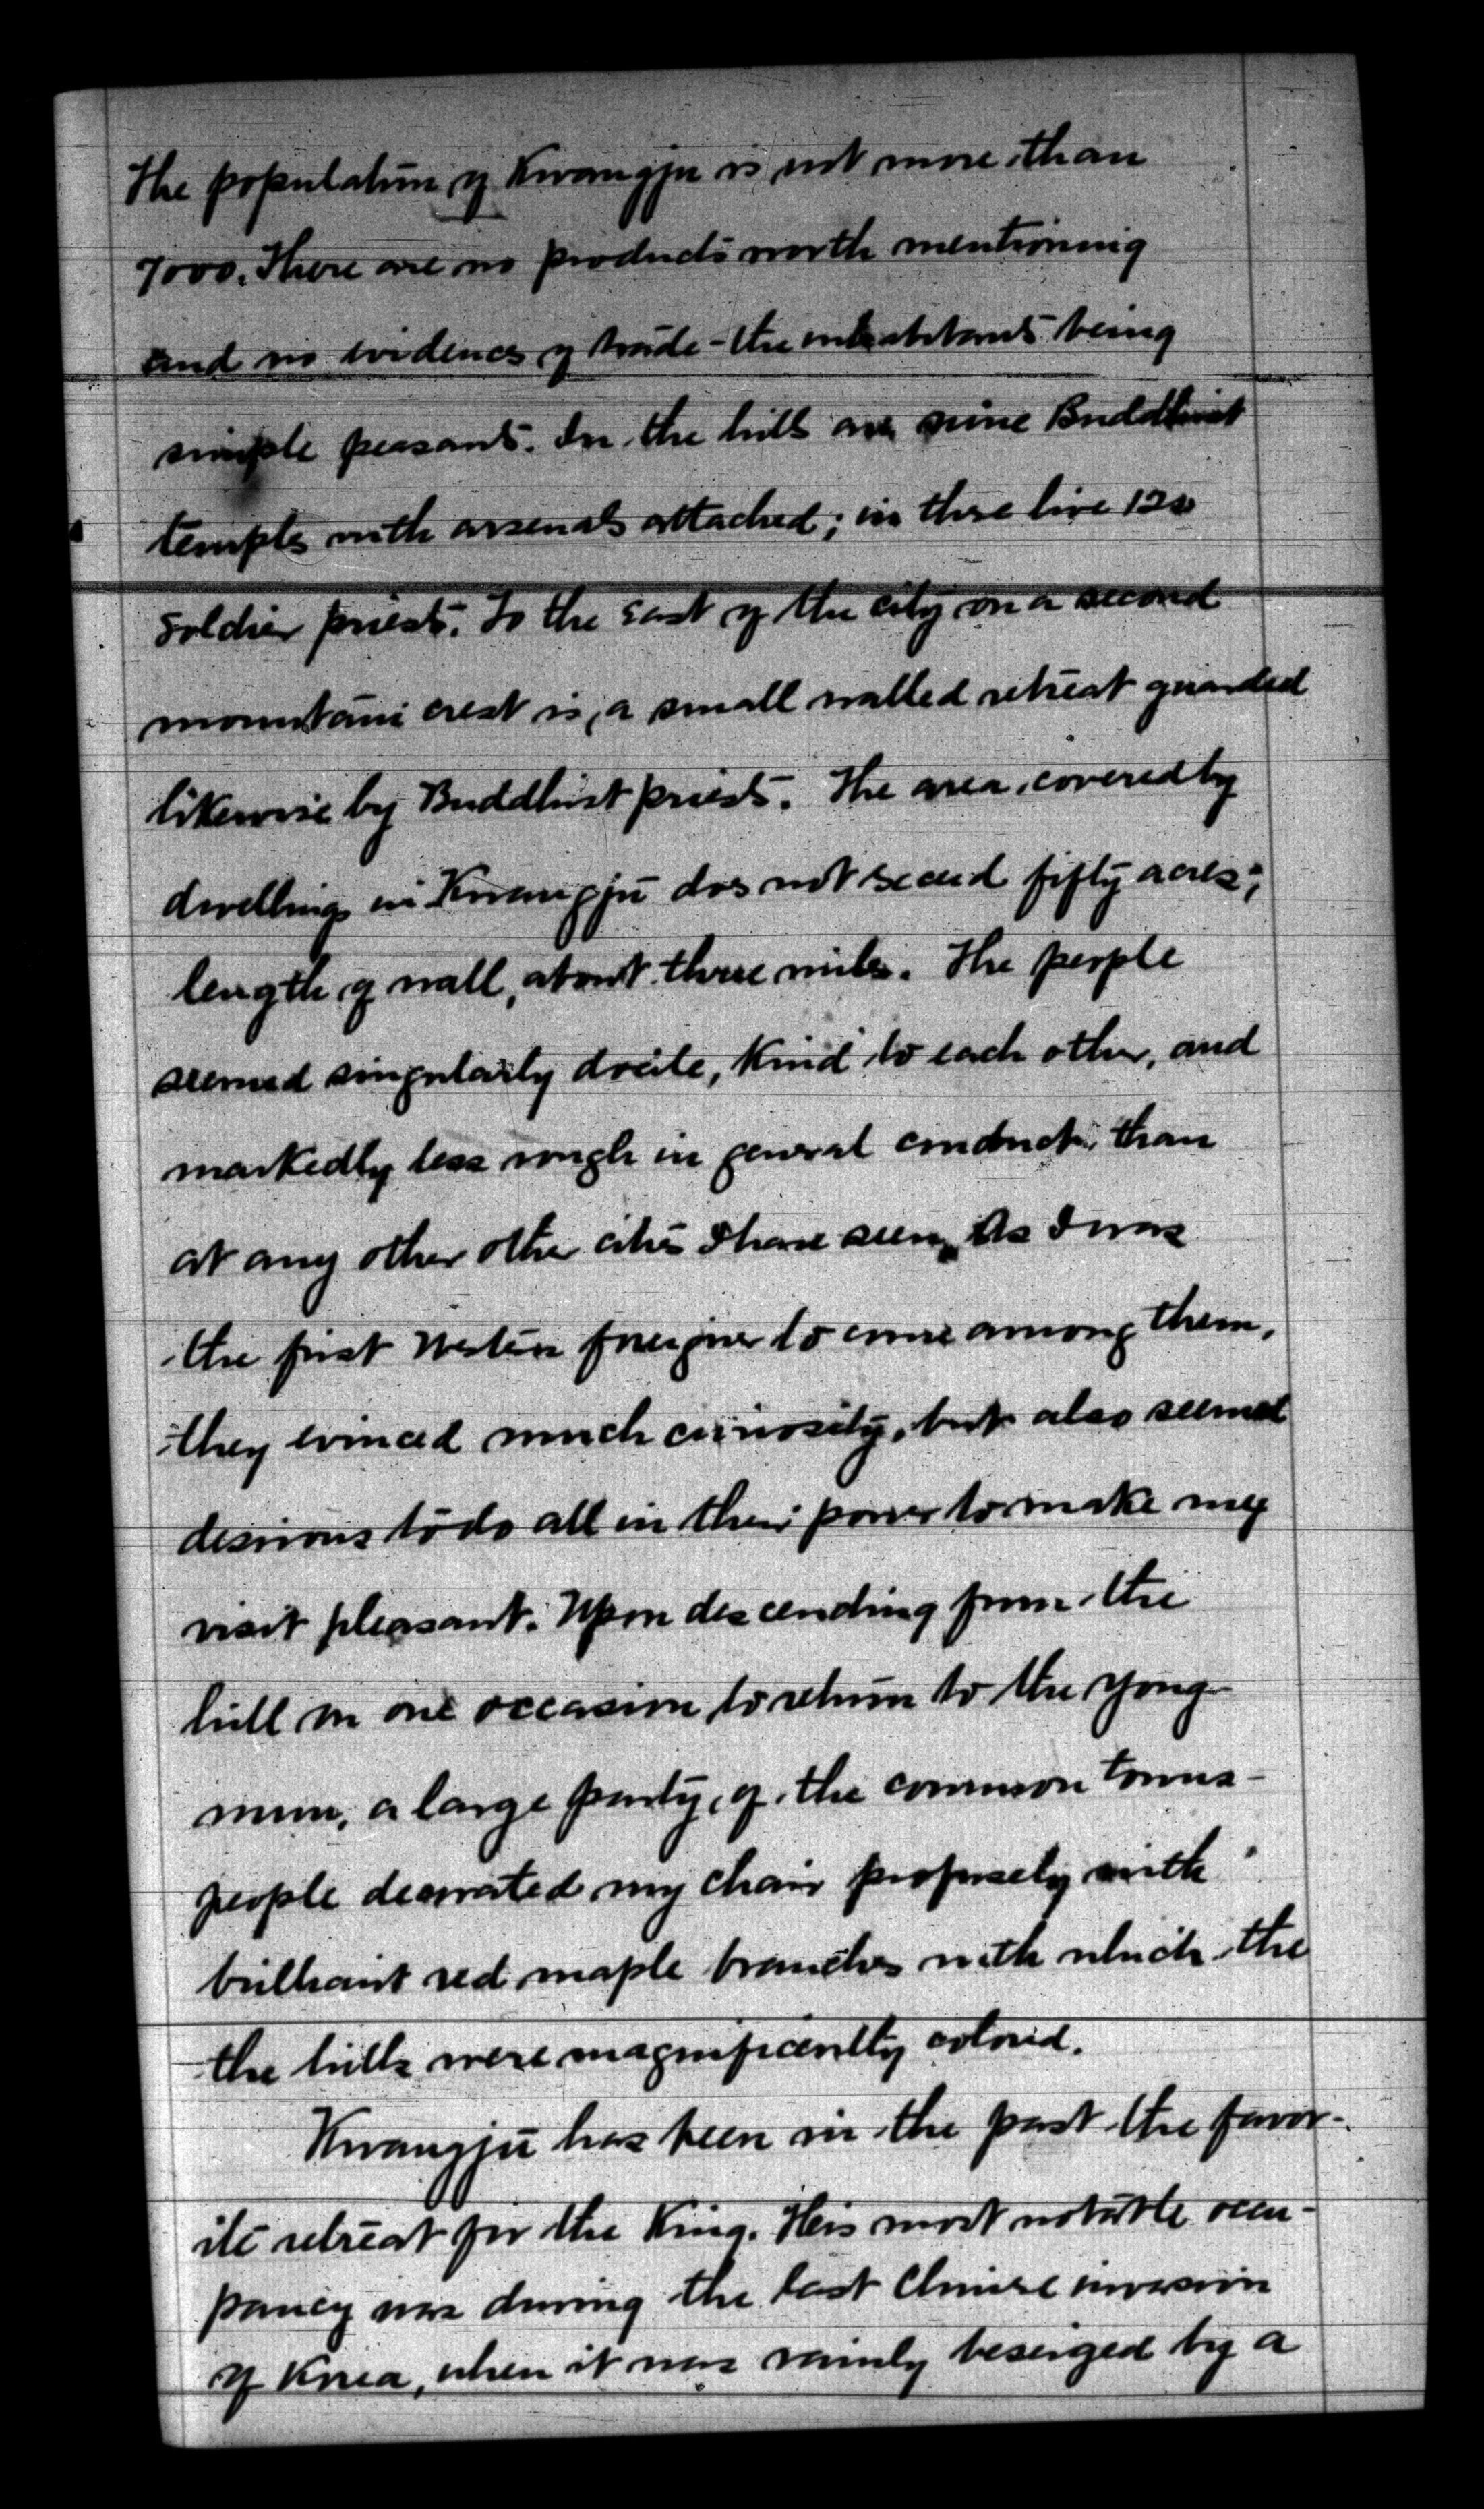 The population of Kwangju is not more than
7000. There are no products worth mentioning
and no evidences of trade - the inhabitants being
simple peasants. In the hills are nine Buddhist
temples with arsenals attached; in these live 120
soldier priests. To the East of the city on a second
mountain crest is, a small walled retreat guarded
likewise by Buddhist priests. The area, covered by
dwellings in Kwangju does not exceed fifty acres;
length of wall, about three miles. The people
seemed singularly docile, kind to each other, and
markedly less rough in general conduct, than
at any other other cities I have seen, As I was
the first Western foreigner to come among them,
they evinced much curiosity, but also seemed
desirous to do all in their power to make my
visit pleasant. Upon descending from the
hill on one occasion to return to the yong-
mun, a large party, of the common towns-
people decorated my chair profusely with
brilliant red maple branches with which the
the hills were magnificently colored.
Kwangju has been in the past the favor-
ite retreat for the King. His most notable occu-
pancy was during the last Chinese invasion
of Korea, when it was vainly beseiged by a